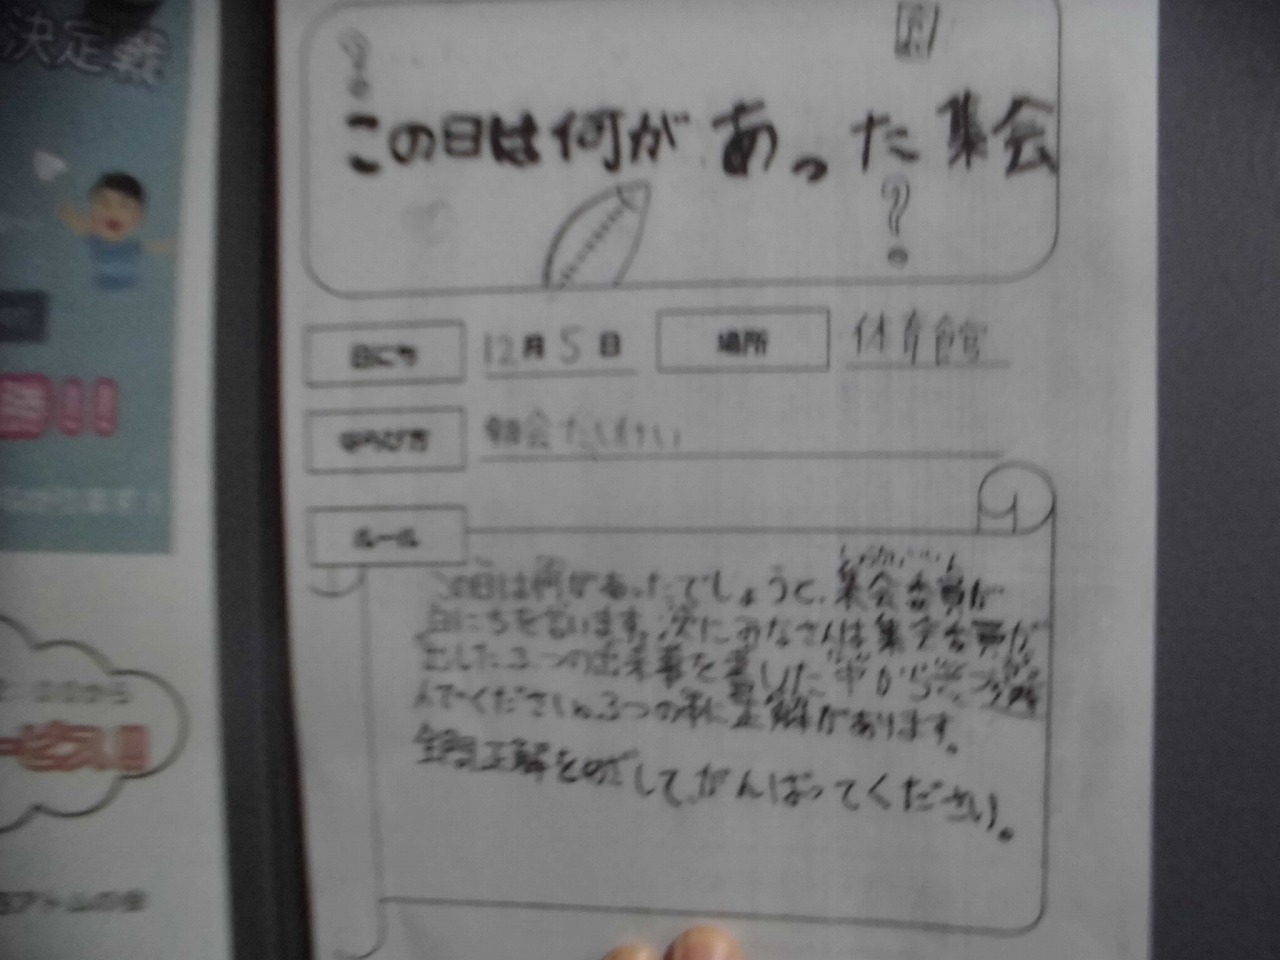 決定戦
!!
アトムの会
この日は何があった集会
?
?
日にち 12月5日 場所 体育館
ならび方 朝会たいけい
ルール
この日は何があったでしょうと、集会委員が
日にちを言います。次にみなさんは集会委員が
出した3つの出来事を書いた中から
んでください。3つの中に正解があります。
全問正解をめざして、がんばってください。